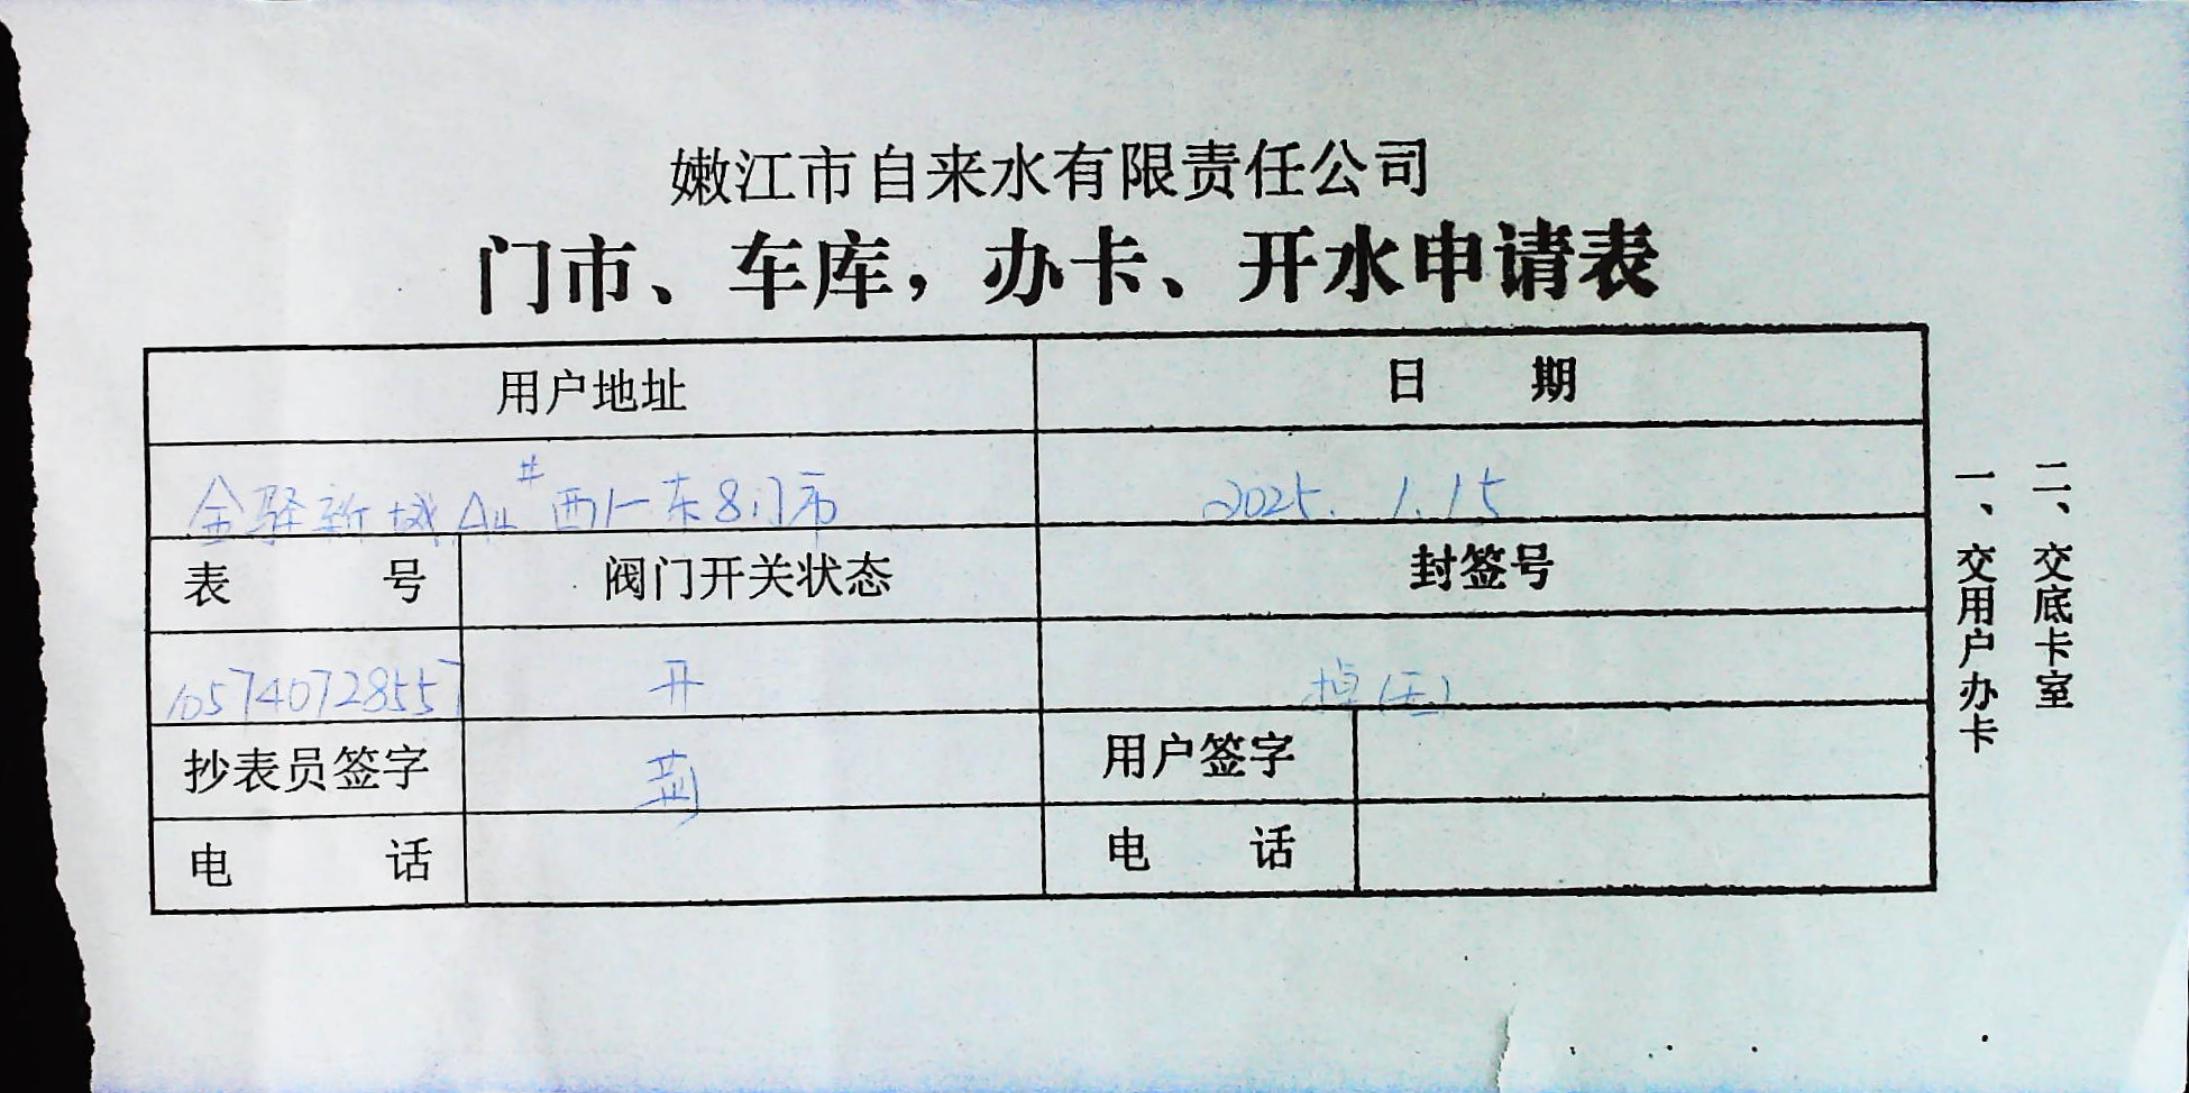 嫩江市自来水有限责任公司
门市、车库，办卡、开水申请表
用户地址
日 期
金驿新城A4# 西厂东8门市
2025.1.15
表 号
阀门开关状态
封签号
105740728557
开
抄表员签字
用户签字
电 话
电 话
一、交用户办卡
二、交底卡室